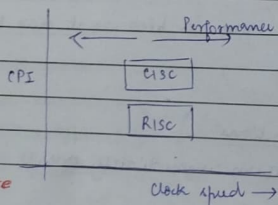 Performance
CPI CISC
RISC
Clock speed →